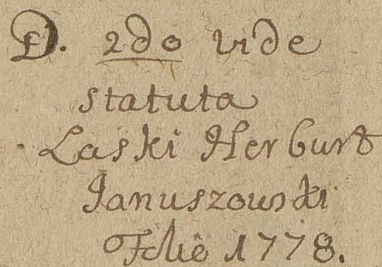 D. 2do vide
statuta
Laski Herburt
Januszowski
Folio 1778.